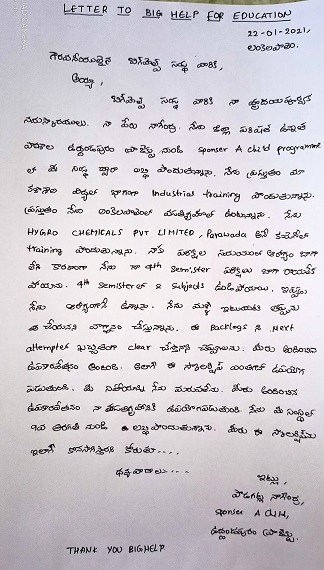 LETTER TO BIG HELP FOR EDUCATION
22-01-2021,
లంకెలపాలెం.
గౌరవనీయులైన బిగ్‌హెల్ప్ సంస్థ వారికి,
అయ్యా,
బిగ్‌హెల్ప్ సంస్థ వారికి నా హృదయపూర్వక
నమస్కారములు. నా పేరు నాగేంద్ర. నేను జిల్లా పరిషత్ ఉన్నత
పాఠశాల ఉద్దండపురం ప్రాజెక్టు నుండి sponser A child programme
లో మీ సంస్థ ద్వారా లబ్ది పొందుతున్నాను. నేను ప్రస్తుతం మా
కళాశాల విద్యలో భాగంగా Industrial training పొందుతున్నాను.
ప్రస్తుతం నేను లంకెలపాలెంలో ఉంటున్నాను. నేను
HYGRO CHEMICALS PVT LIMITED, Parawada అనే కంపెనీలో
training పొందుతున్నాను. నాకు పరీక్షల సమయంలో ఆరోగ్యం బాగా
లేని కారణంగా నేను నా 4th Semister పరీక్షలు బాగా రాయలేక
పోయాను. 4th Semister లో 2 Subjects ఉండిపోయాయి. ఇప్పుడు
నేను ఆరోగ్యంగానే ఉన్నాను. నేను మళ్ళీ ఇటువంటి తప్పును
చేయనని వాగ్దానం చేస్తున్నాను. ఈ Backlogs ని Next
attempt లో ఖచ్చితంగా clear చేస్తానని చెప్తున్నాను. మీరు అందించిన
ఉపకారవేతనం అందింది. అలాగే ఈ స్కాలర్షిప్ ఎంతగానో ఉపయోగ
పడుతుంది. మీ సహాయాన్ని నేను మరువలేను. మీరు అందించిన
ఉపకారవేతనం నా ఉపయోగపడుతుంది. నేను మీ సంస్థలో
9వ తరగతి నుండి లబ్ధిపొందుతున్నాను. మీరు ఈ స్కాలర్షిప్‌ను
ఇలాగే కొనసాగిస్తారని కోరుతూ....
ధన్యవాదాలు....
ఇట్లు,
నాగేంద్ర,
sponser A child,
ఉద్దండపురం ప్రాజెక్టు.
THANK YOU BIGHELP